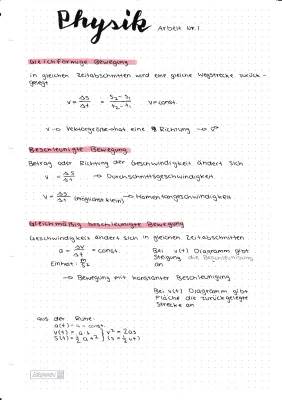 Physik Arbeit Nr. 1
Gleichförmige Bewegung
in gleichen Zeitabschnitten wird eine gleiche Wegstrecke zurück-
gelegt
v = Δs/Δt = s₂-s₁/t₂-t₁ v = const.
v → Vektorgröße → hat eine Richtung → v⃗
Beschleunigte Bewegung
Betrag oder Richtung der Geschwindigkeit ändert sich
v = Δs/Δt → Durchschnittsgeschwindigkeit
v = Δs/Δt (möglichst klein) → Momentangeschwindigkeit
Gleichmäßig beschleunigte Bewegung
Geschwindigkeit ändert sich in gleichen Zeitabschnitten
a = Δv/Δt = const. Bei v(t) Diagramm gibt
Einheit: m/s² Steigung die Beschleunigung
an
→ Bewegung mit konstanter Beschleunigung
Bei v(t) Diagramm gibt
Fläche die zurückgelegte
Strecke an
aus der Ruhe:
a(t) = a = const.
v(t) = a · t } v² = 2as
s(t) = ½ a t² } (s = ½ vt)